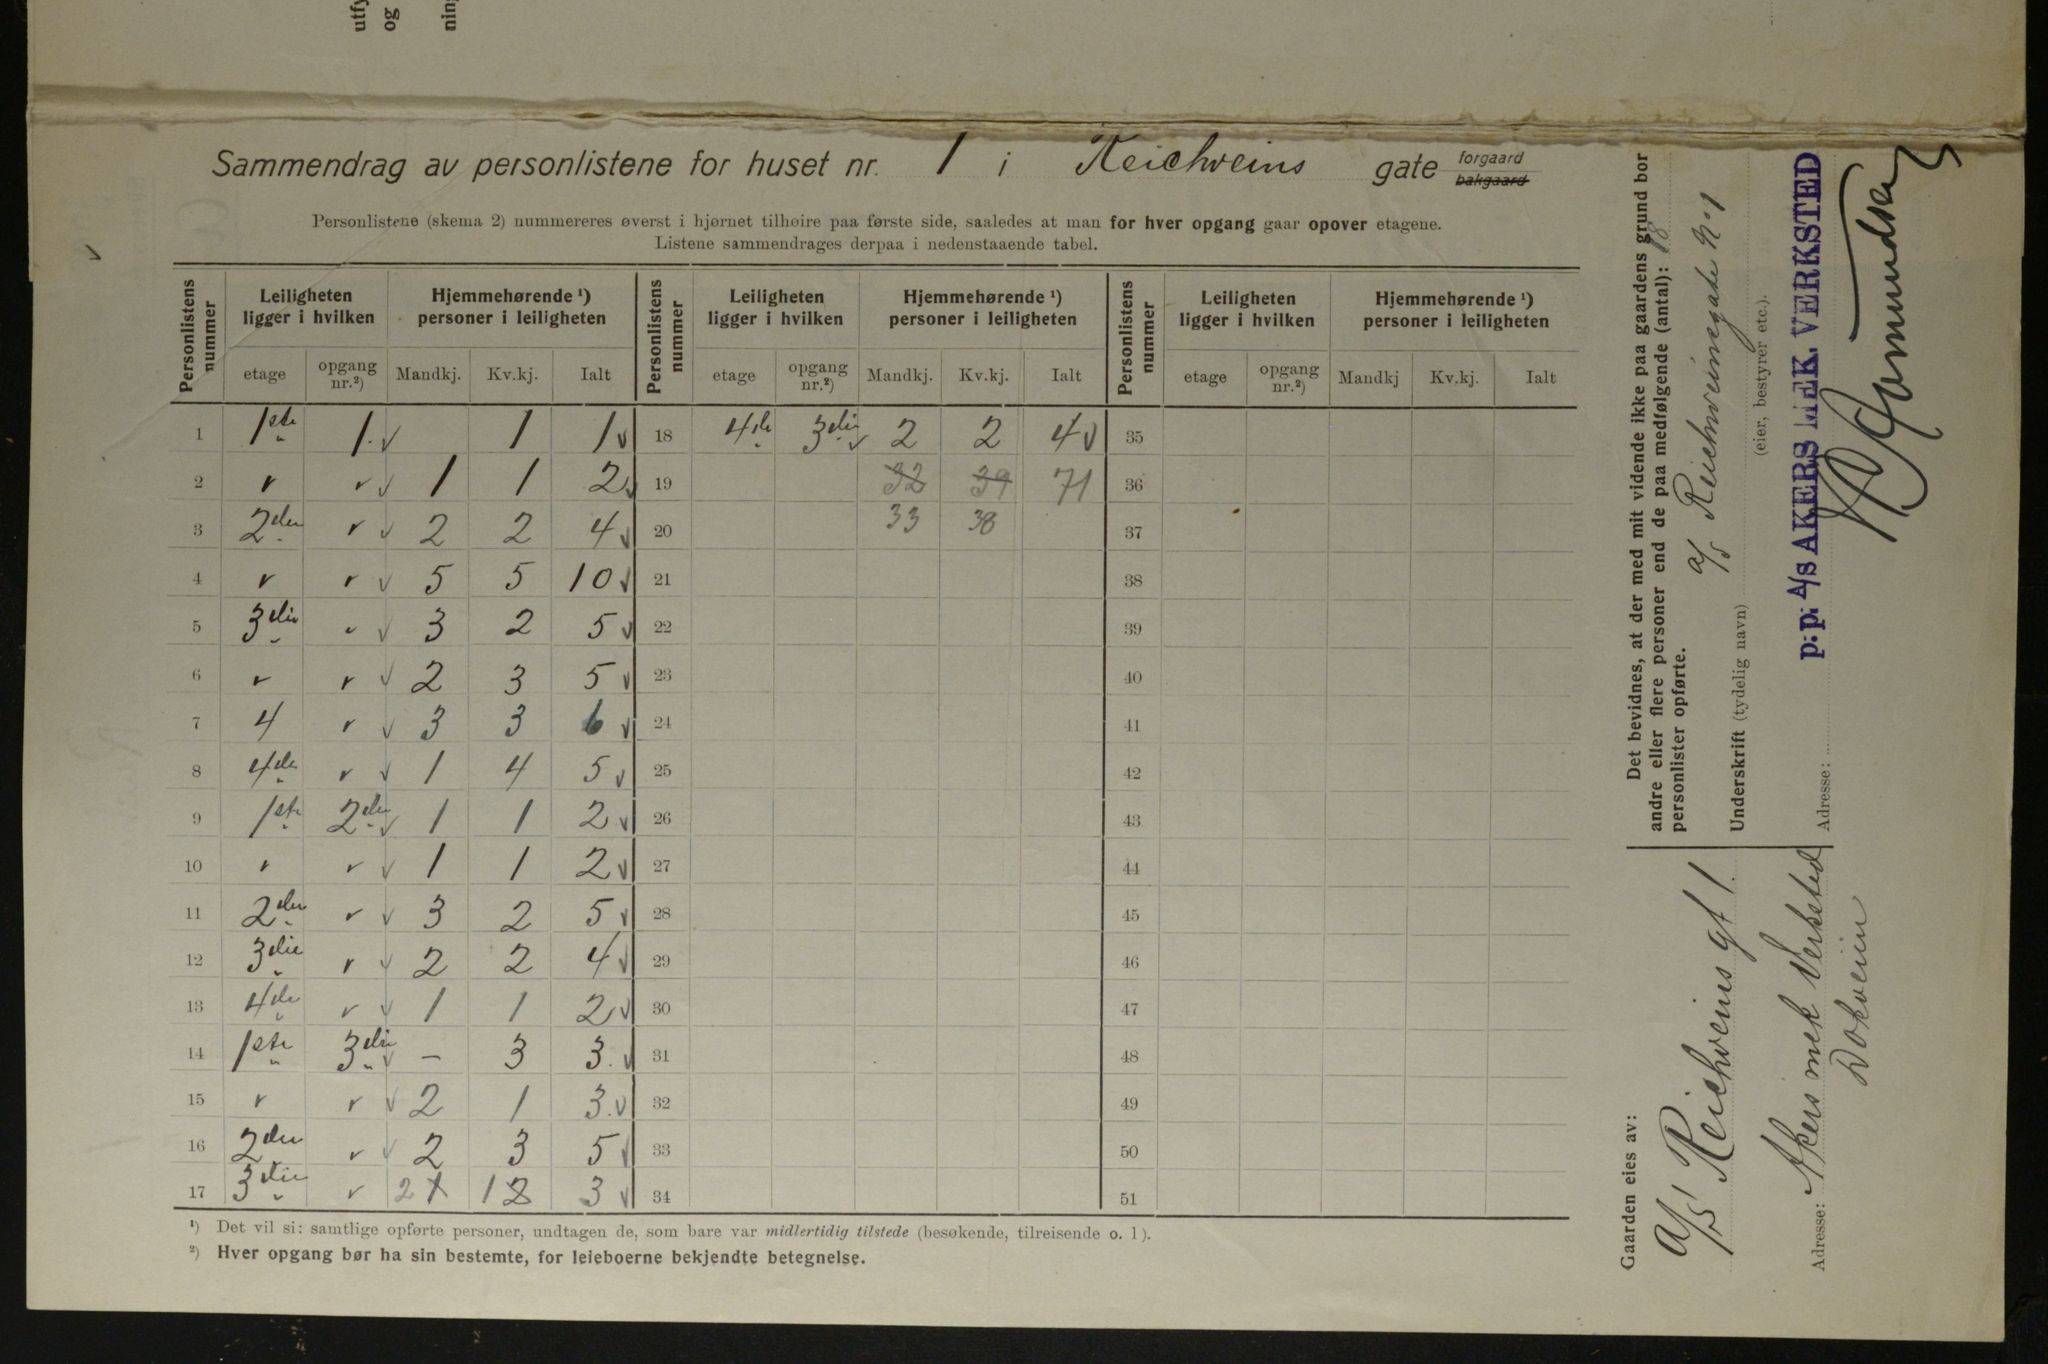 utfy
og
nin
Sammendrag av personlistene for huset nr. 1 i Reichweins gate forgaard ~~bakgaard~~
Personlistene (skema 2) nummereres øverst i hjørnet tilhøire paa første side, saaledes at man for hver opgang gaar opover etagene.
Listene sammendrages derpaa i nedenstaaende tabel.
Personlistens nummer | Leiligheten ligger i hvilken | Hjemmehørende ¹) personer i leiligheten | Personlistens nummer | Leiligheten ligger i hvilken | Hjemmehørende ¹) personer i leiligheten | Personlistens nummer | Leiligheten ligger i hvilken | Hjemmehørende ¹) personer i leiligheten
etage | opgang nr.²) | Mandkj. | Kv.kj. | Ialt | etage | opgang nr.²) | Mandkj. | Kv.kj. | Ialt | etage | opgang nr.²) | Mandkj | Kv.kj. | Ialt
1 | 1ste | 1. | | 1 | 1 | 18 | 4de | 3die | 2 | 2 | 4 | 35
2 | " | " | 1 | 1 | 2 | 19 | | | ~~32~~ | ~~39~~ | 71 | 36
3 | 2den | " | 2 | 2 | 4 | 20 | | | 33 | 38 | | 37
4 | " | " | 5 | 5 | 10 | 21 | 38
5 | 3die | " | 3 | 2 | 5 | 22 | 39
6 | " | " | 2 | 3 | 5 | 23 | 40
7 | 4 | " | 3 | 3 | 6 | 24 | 41
8 | 4de | " | 1 | 4 | 5 | 25 | 42
9 | 1ste | 2den | 1 | 1 | 2 | 26 | 43
10 | " | " | 1 | 1 | 2 | 27 | 44
11 | 2den | " | 3 | 2 | 5 | 28 | 45
12 | 3die | " | 2 | 2 | 4 | 29 | 46
13 | 4de | " | 1 | 1 | 2 | 30 | 47
14 | 1ste | 3die | – | 3 | 3. | 31 | 48
15 | " | " | 2 | 1 | 3. | 32 | 49
16 | 2den | " | 2 | 3 | 5 | 33 | 50
17 | 3die | " | 2 ~~1~~ | 1 ~~2~~ | 3 | 34 | 51
¹) Det vil si: samtlige opførte personer, undtagen de, som bare var midlertidig tilstede (besøkende, tilreisende o. l).
²) Hver opgang bør ha sin bestemte, for leieboerne bekjendte betegnelse.
Det bevidnes, at der med mit vidende ikke paa gaardens grund bor
andre eller flere personer end de paa medfølgende (antal): 18
personlister opførte.
a/s Reichweinsgate No 1
Underskrift (tydelig navn)
(eier, bestyrer etc.).
p.p. A/S AKERS MEK. VERKSTED
Adresse:
Gaarden eies av:
a/s Reichweins gt 1.
Adresse: Akers mek Verksted
Dokveien